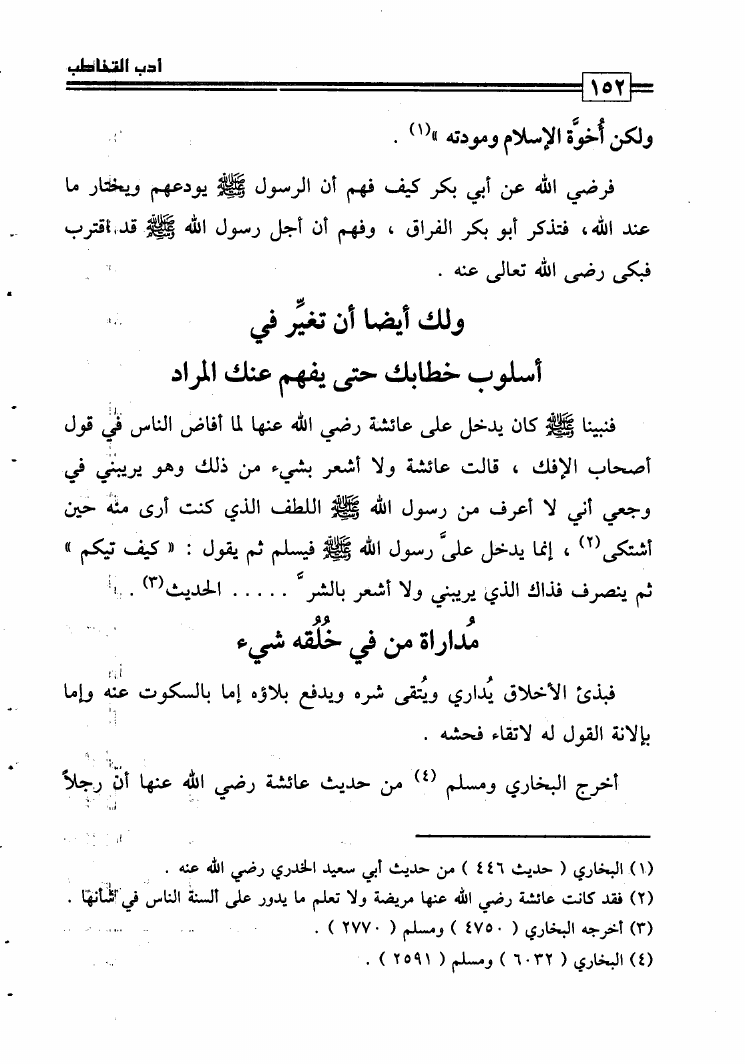 أدب التخاطب
١٥٢
ولكن أُخوَّة الإسلام ومودته »(١) .
فرضي الله عن أبي بكر كيف فهم أن الرسول ﷺ يودعهم ويختار ما
عند الله، فتذكر أبو بكر الفراق ، وفهم أن أجل رسول الله ﷺ قد اقترب
فبكى رضى الله تعالى عنه .
ولك أيضا أن تغيِّر في
أسلوب خطابك حتى يفهم عنك المراد
فنبينا ﷺ كان يدخل على عائشة رضي الله عنها لما أفاض الناس في قول
أصحاب الإفك ، قالت عائشة ولا أشعر بشيء من ذلك وهو يريبني في
وجعي أني لا أعرف من رسول الله ﷺ اللطف الذي كنت أرى منه حين
أشتكى(٢) ، إنما يدخل علىَّ رسول الله ﷺ فيسلم ثم يقول : « كيف تيكم »
ثم ينصرف فذاك الذي يريبني ولا أشعر بالشرَّ ..... الحديث(٣) .
مُداراة من في خُلُقه شيء
فبذئ الأخلاق يُداري ويُتقى شره ويدفع بلاؤه إما بالسكوت عنه وإما
بإلانة القول له لاتقاء فحشه .
أخرج البخاري ومسلم (٤) من حديث عائشة رضي الله عنها أن رجلاً
(١) البخاري ( حديث ٤٤٦ ) من حديث أبي سعيد الخدري رضي الله عنه .
(٢) فقد كانت عائشة رضي الله عنها مريضة ولا تعلم ما يدور على ألسنة الناس في شأنها .
(٣) أخرجه البخاري ( ٤٧٥٠ ) ومسلم ( ٢٧٧٠ ) .
(٤) البخاري ( ٦٠٣٢ ) ومسلم ( ٢٥٩١ ) .